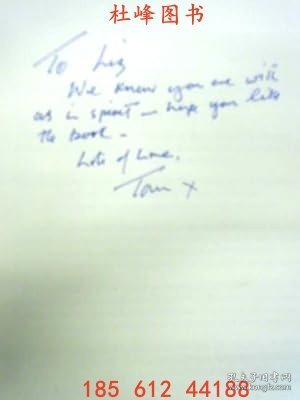 杜峰图书
To Liz
We know you are with
us in spirit - hope you like
the book -
Lots of love,
Tom x
185 612 44188
孔夫子旧书网